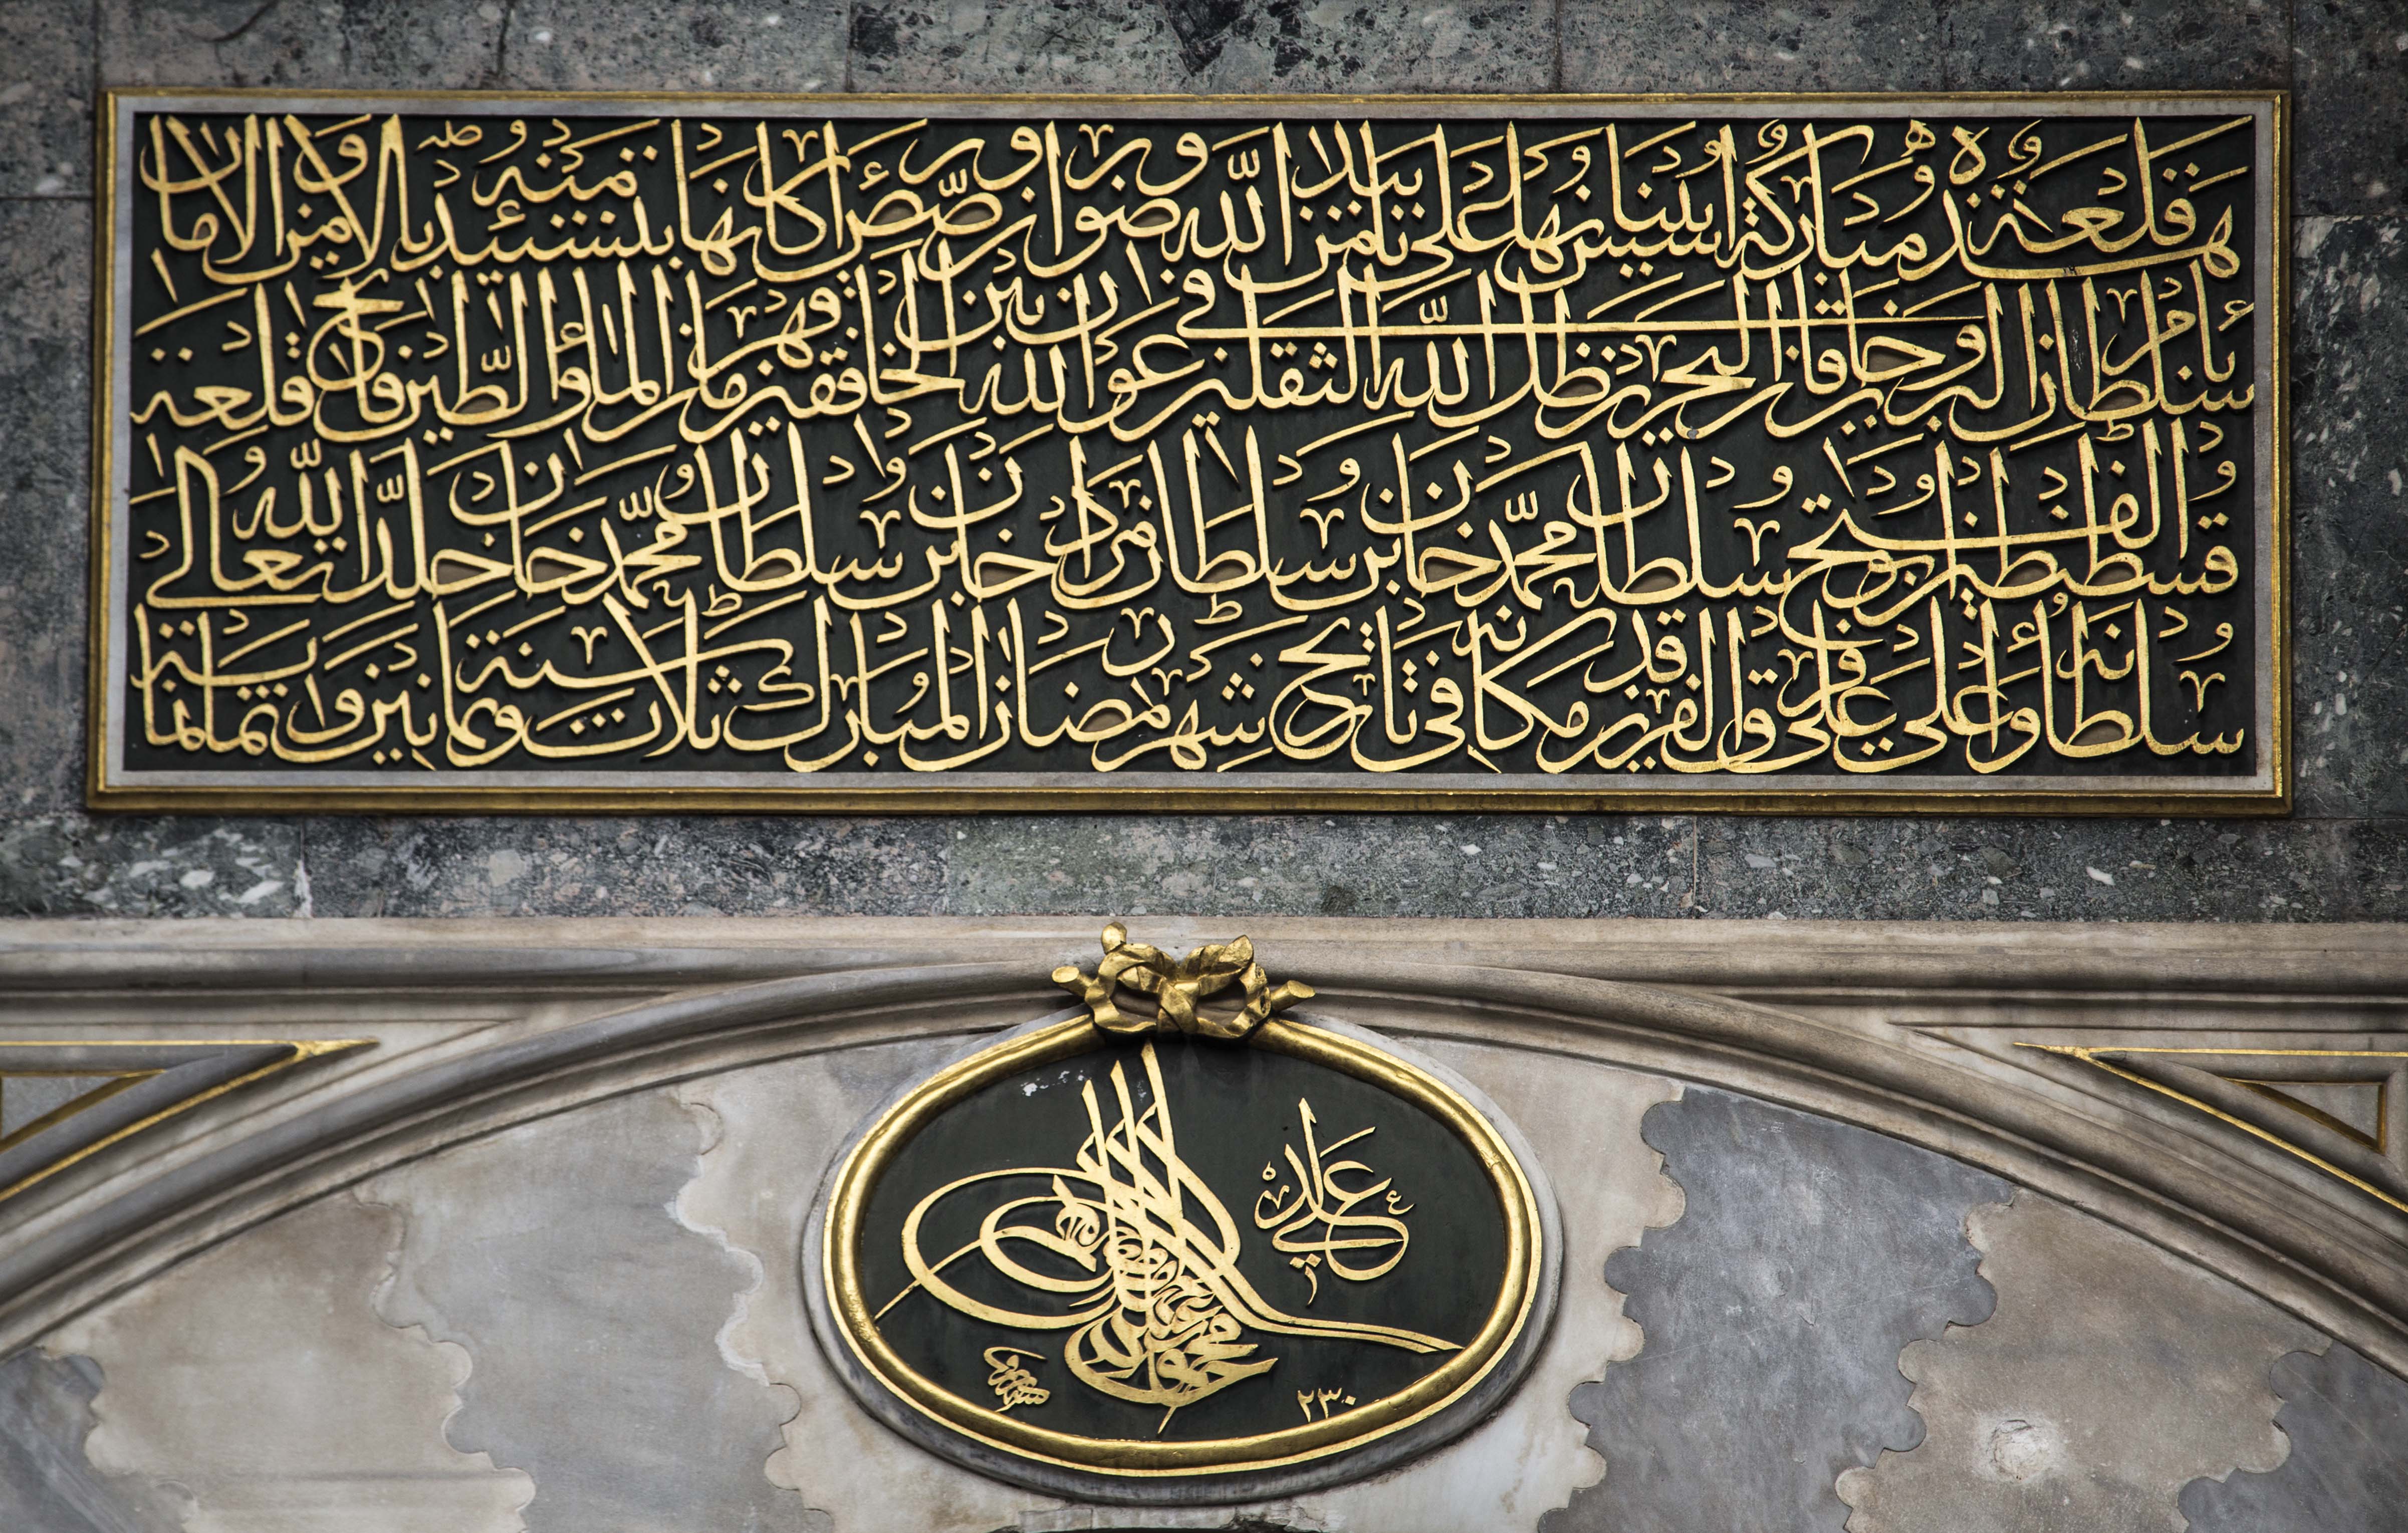 هذه قلعة مباركة اسس بنيانها على تأييد من الله ورضوان ورصص اركانها بتشييد متنه بالامن والامان
بامر سلطان البرين وخاقان البحرين ظل الله في الثقلين عون الله بين الخافقين قهرمان الماء والطين فاتح قلعة
قسطنطين ابو الفتح سلطان محمد خان بن سلطان مراد خان بن سلطان محمد خان خلد الله تعالى
سلطانه واعلى على فرق الفرقدين مكانه في تاريخ شهر رمضان المبارك سنة ثلاث وثمانين وثمانمائة
عدلي
محمود خان بن عبد الحميد مظفر دائما
٢٣٠